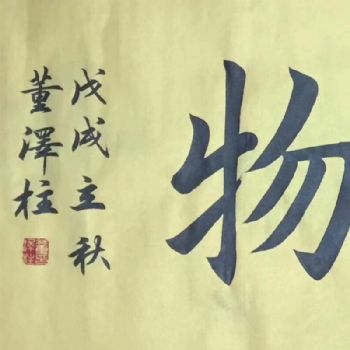 物
戊戌立秋
董澤柱